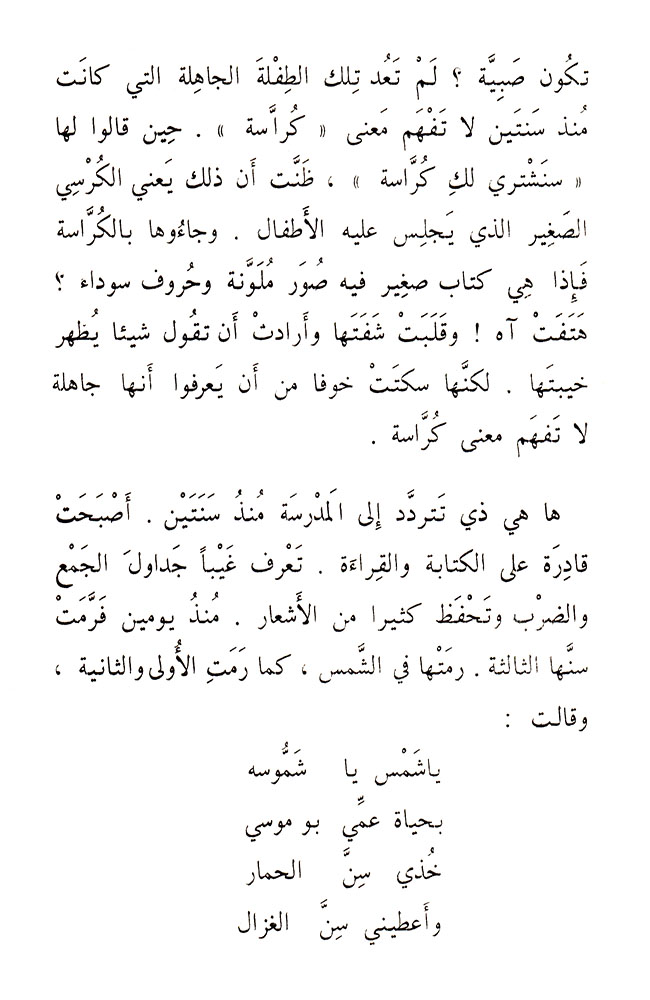 تكُون صَبِيَّة ؟ لَمْ تَعُد تِلك الطِفْلةَ الجاهِلة التي كانَت
مُنذ سَنتَين لا تَفْهَم مَعنى « كُراَّسة » . حِين قالوا لها
« سنَشْتري لكِ كُرَّاسة » ، ظَنَّت أَن ذلك يَعني الكُرْسِي
الصَغِير الذي يَجلِس عليه الأَطفال . وجاءُوها بالكُرَّاسة
فَإِذا هِي كتاب صغِير فيه صُوَر مُلَوَّنة وحُروف سوداء ؟
هَتَفَتْ آه ! وقَلَبَتْ شَفَتَها وأَرادتْ أَن تقُول شيئا يُظهر
خيبتَها . لكنَّها سكتَتْ خوفا من أَن يَعرفوا أَنها جاهلة
لا تَفهَم معنى كُرَّاسة .
ها هي ذي تَتردَّد إِلى الَمدْرسَة مُنذُ سَنَتَيْن . أَصْبَحَتْ
قادِرَة على الكتابة والقِراءَة . تَعْرف غَيْباً جَداولَ الجَمْع
والضرْب وتَحْفَظ كثيرا من الأَشعار . مُنذُ يومين فَرَّمَتْ
سنَّها الثالثة . رمَتْها في الشَّمس ، كما رَمَتِ الأُولى والثانية ،
وقالت :
ياشَمْس يا شَمُّوسه
بحياة عمِّي بو موسي
خُذي سِنَّ الحمار
وأَعطيني سِنَّ الغزال